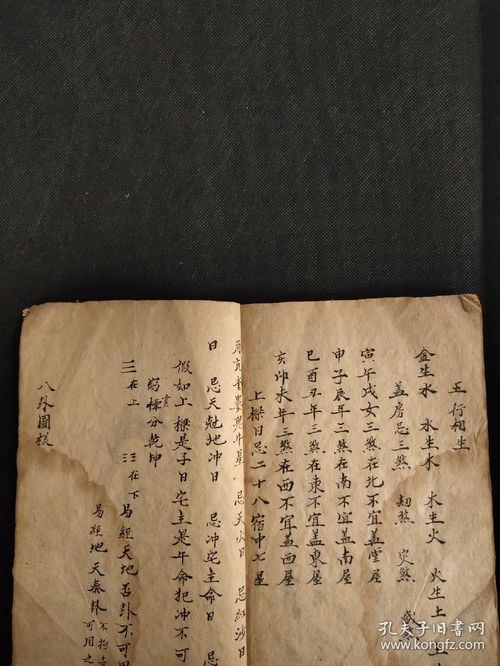 五行相生
金生水 水生木 木生火 火生土
盖房忌三煞 劫煞 灾煞
寅午戌年三煞在北不宜盖堂屋
申子辰年三煞在南不宜盖南屋
巳酉丑年三煞在東不宜盖東屋
亥卯未年三煞在西不宜盖西屋
上樑日忌二十八宿中七星
忌天火日 忌紅沙日
日 忌天尅地冲日 忌冲宅主命日 忌
假如上樑是子日宅主是午命犯冲不可
樑分乾坤
三在上 在下 易經天地否卦不可用
易經地天泰卦
可用之
八卦圖樣
孔夫子旧书网
www.kongfz.com